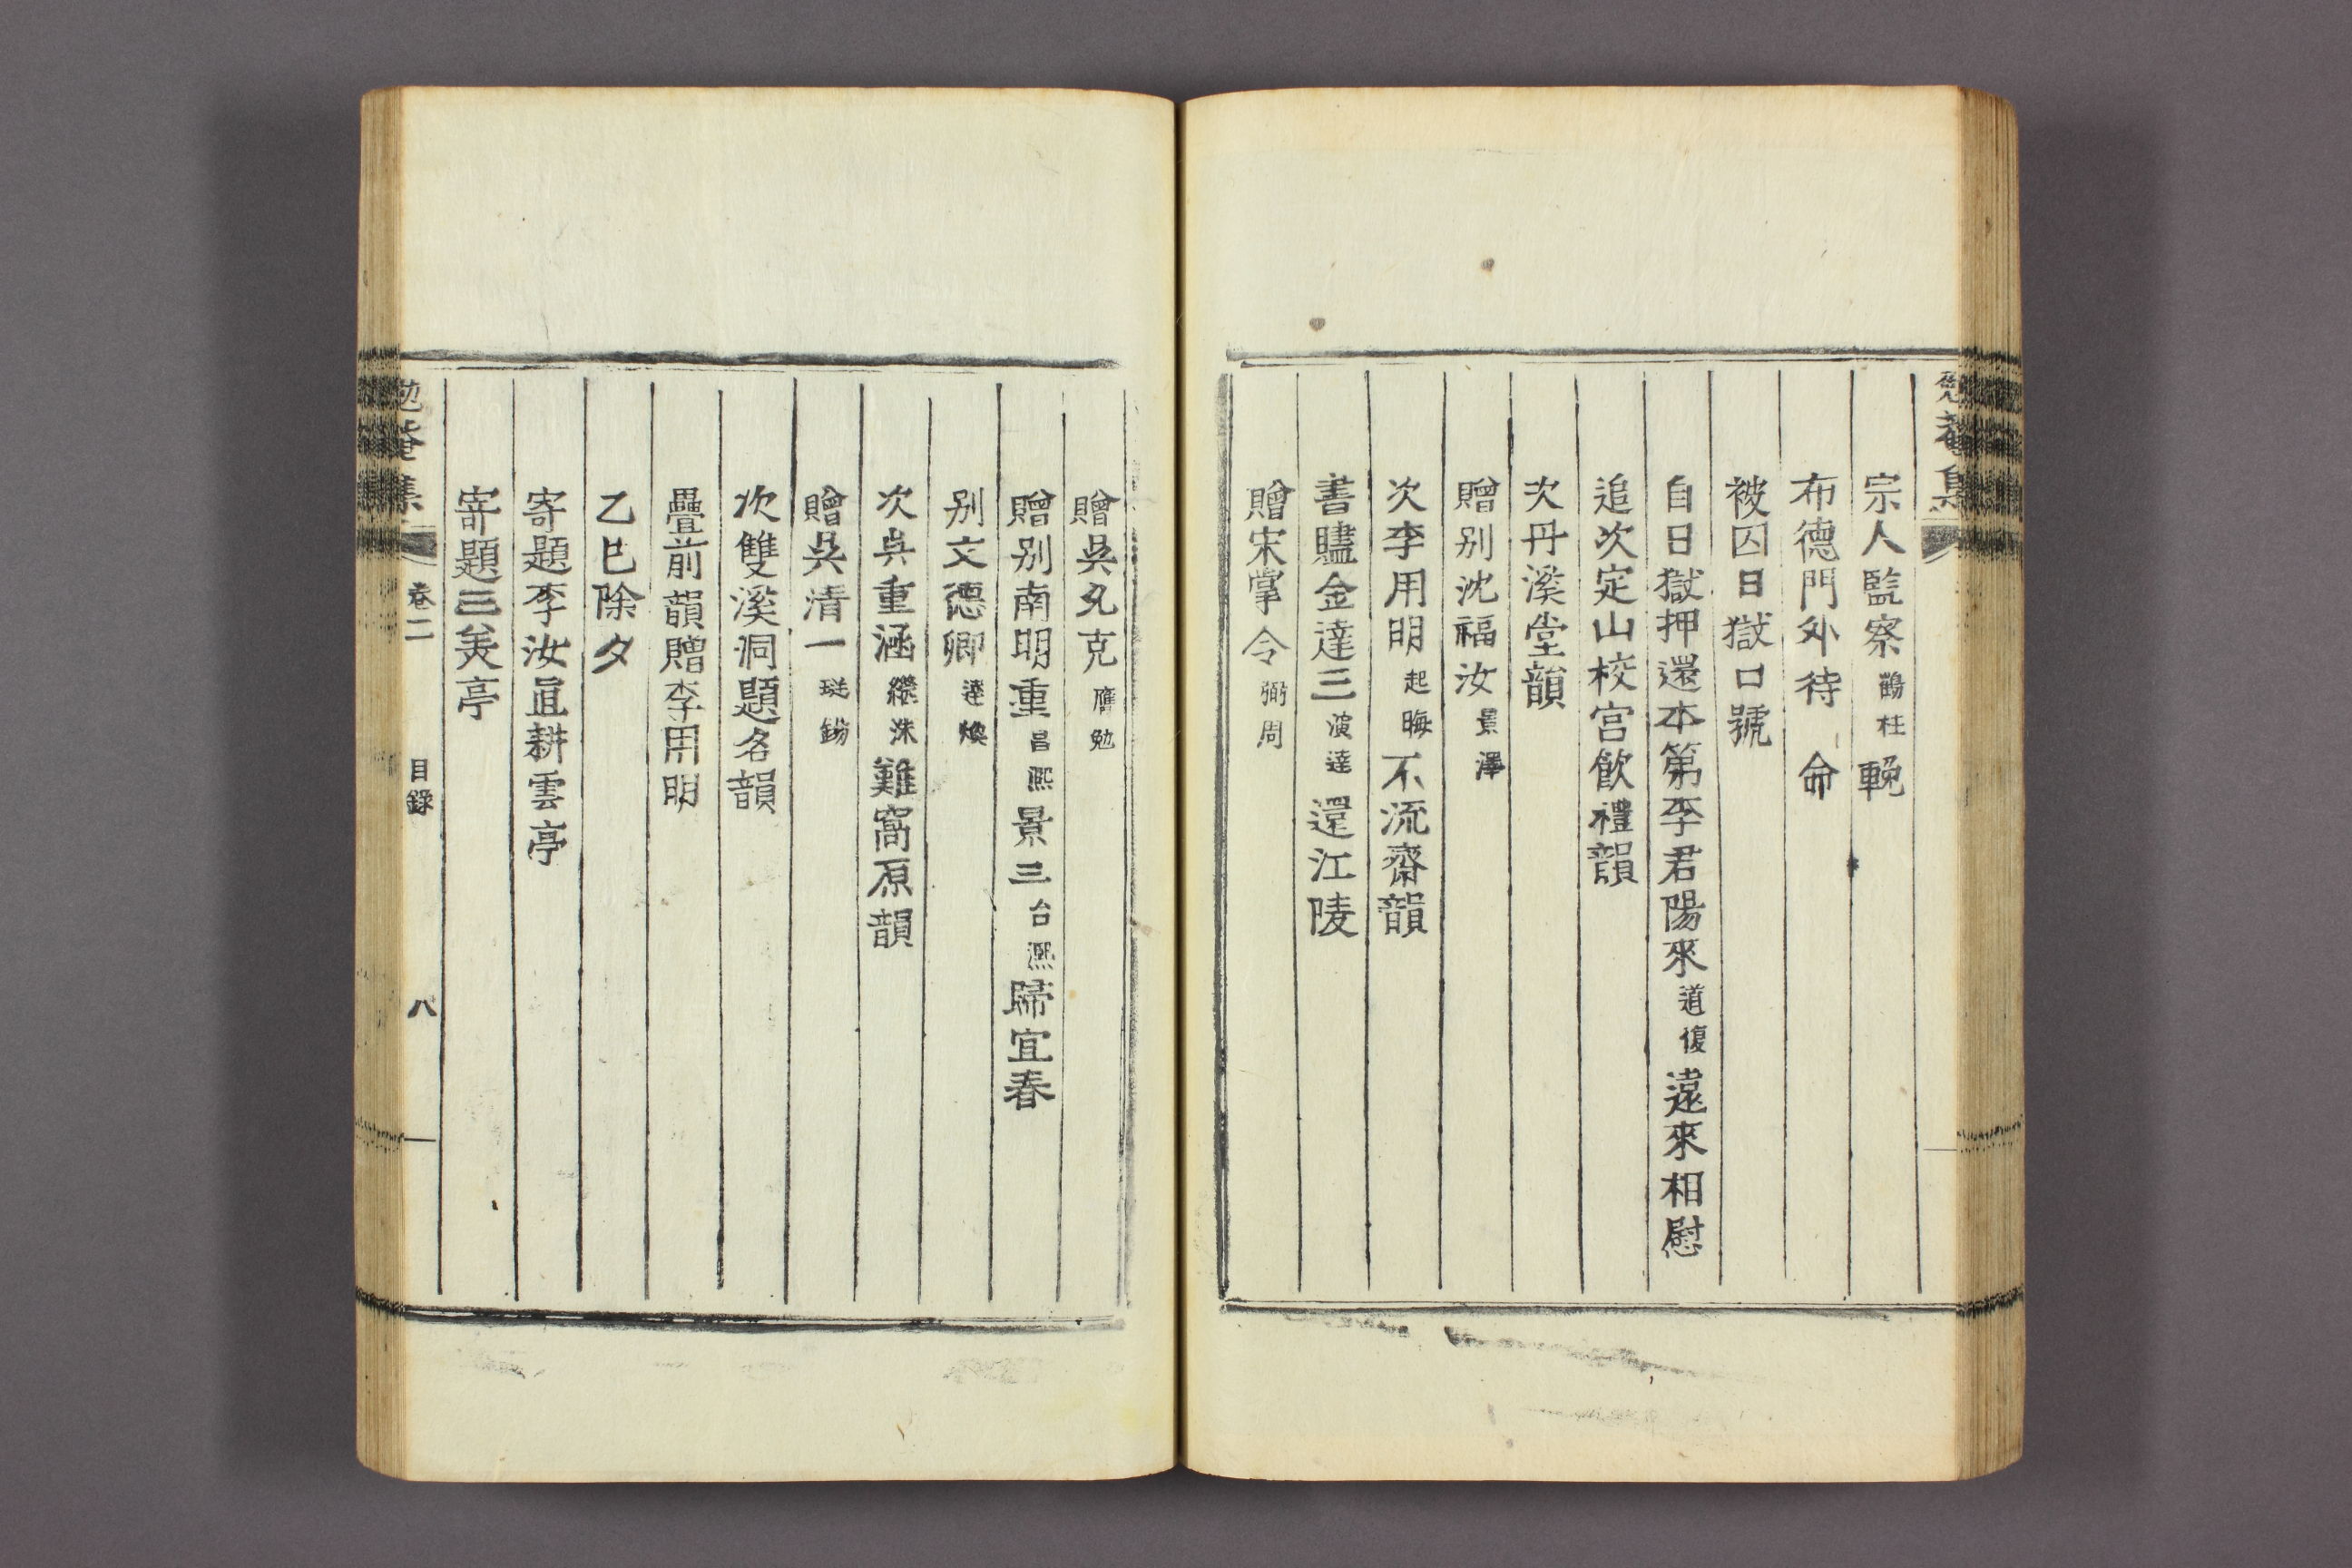 勉菴集
宗人監察鶴柱輓
布德門外待 命
被囚日獄口號
自日獄押還本第李君陽來道復遠來相慰
追次定山校宮飮禮韻
次丹溪堂韻
贈別沈福汝景澤
次李用明起晦不流齋韻
書贐金達三演達還江陵
贈宋掌令弼周
贈吳允克膺勉
贈別南明重昌熙景三台熙歸宜春
別文德卿達煥
次吳重涵繼洙難窩原韻
贈吳淸一
次雙溪洞題名韻
疊前韻贈李用明
乙巳除夕
寄題李汝直耕雲亭
寄題三美亭
勉菴集 卷二 目錄 八